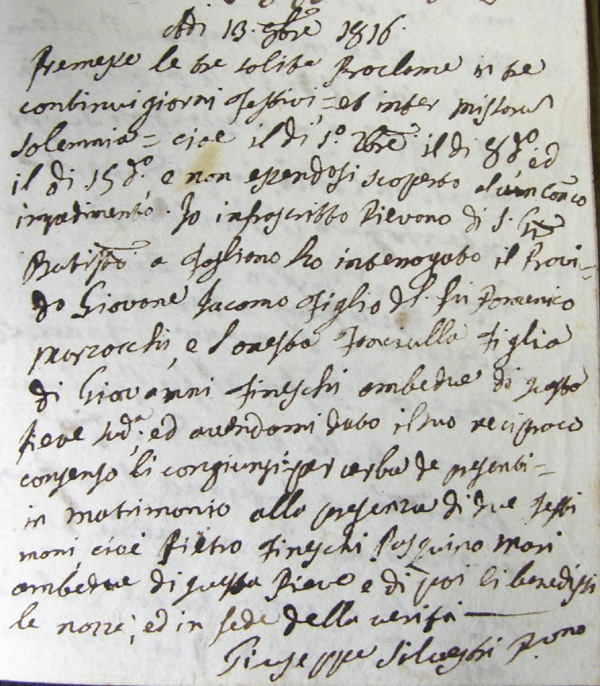 Adi 13. 9bre 1816.
Premesse le tre solite Proclame in tre
continui giorni Festivi = et inter missarum
solemnia = cioè il dì 1º. 9bre il dì 8 dº.
il dì 15 dº. ed e non essendosi scoperto alcun canco
impedimento. Io infrascritto Pievano di S. Gio
Batista a Fogliano ho interrogato il Provi=
do Giovane Jacomo Figlio del fu Domenico
Marzocchi, e l'onesta Fanciulla Figlia
di Giovanni Fineschi ambedue di questa
Pieve sudª; ed avendomi dato il suo reciproco
consenso li congiunsi per verba de presenti =
in matrimonio alla presenza di due Testi
moni, cioè Pietro Fineschi Pasquino Mari
ambedue di questa Pieve e di poi li benedissi
le nozze; ed in fede della verità
Giuseppe Silvestri Pvno